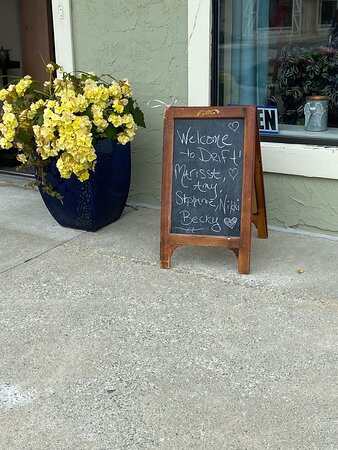 Welcome
to Drift!
Marissa
Amy,
Stephanie, Nikki
Becky
EN